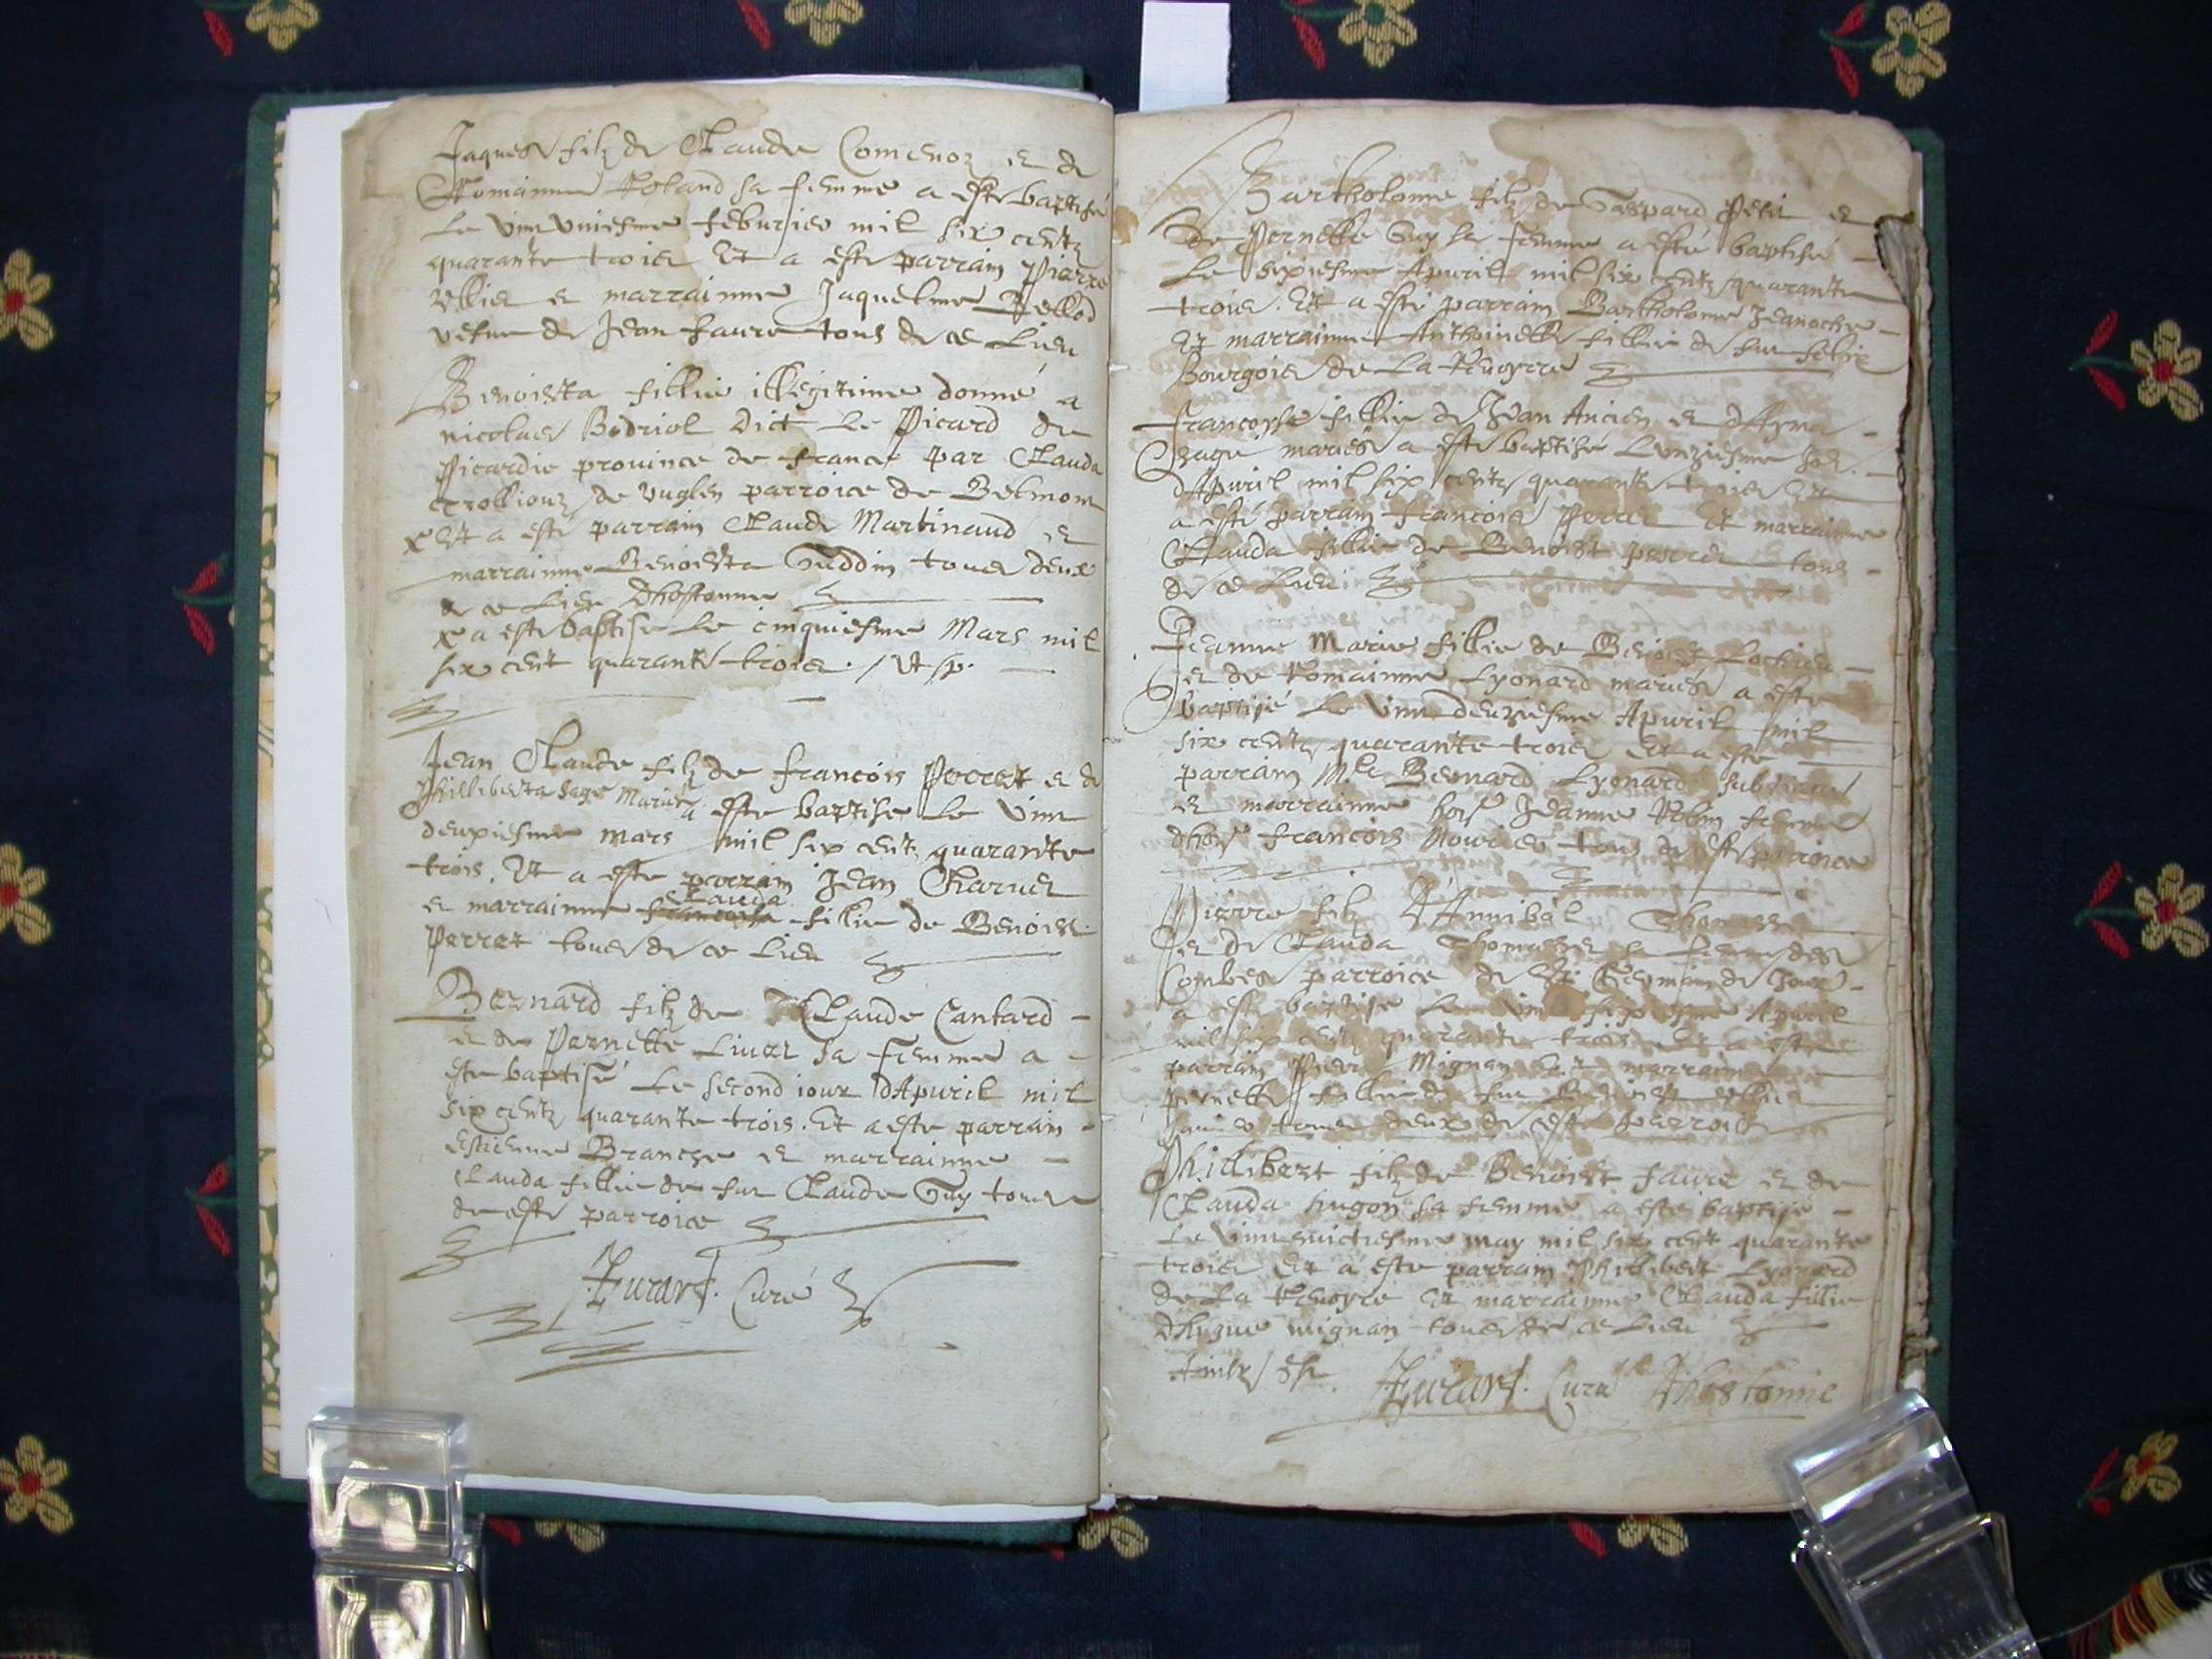 Jaques filz de Claude Comenoz et de
Romainne Roland sa femme a este baptisé
Le vint uniesme feburier mil six centz
quarante trois Et a este parrain Pierre
vllier et marrainne Jaquelme Bellod
vefue de Jean faure tous de ce Lieu
Benoista fillie illegitime donné a
nicolas Bodriol dict Le Picard de
Picardie prouince de france par Clauda
trollieuz de vuglen parroice de Belmont
x Et a esté parrain Claude Martinaud et
marrainne Benoista Guddin tous deux
de ce Lieu dhostonne
x a este baptise Le cinquiesme Mars mil
six cent quarante trois. / Vt sp.
Jean Claude filz de francois Perret et de
Philliberta Sage Mariés a este baptise Le vint
deuxiesme mars mil six centz quarante
trois. Et a este parrain Jean Charuet
et marrainne Clauda francoise fillie de Benoist
Perret tous de ce Lieu
Bernard filz de Claude Cantard
et de Pernette Liuet sa femme a
este baptisé Le second iour dApuril mil
six centz quarante trois. Et a este parrain
Estienne Branche et marrainne
Clauda fillie de fut Claude Guy tous
de este parroice
Curé
Bartholome filz de Gaspard Petit et
de Pernette Guy sa femme a esté baptisé
Le sixiesme Apuril mil six centz quarante
trois. Et a esté parrain Bartholome Jeanoche
Et marrainne Anthoinette fillie de fut felix
Bourgois de La Reuoyre
francoyse fillie de Jean Ancien et dAyma
Chage mariés a este baptise Lonziesme iour
dApuril mil six centz quarante trois Et
a esté parrain francois Perret Et marrainne
Clauda fillie de Benoist perret tous
de ce Lieu
Jeanne Marie fillie de Benoist Lochieu
et de Romainne Lyonard mariés a este
baptisé Le vint deuziesme Apuril mil
six centz quarante trois Et a este
parrain Mre Bernard Lyonard subdiacre
et marrainne hon. Jeanne Robin femme
dhon. francois tous de este parroice
Pierre filz dAnnibal Thomasset
et de Clauda Thomasset sa femme des
Combes parroice de St Germain de Joux
a este baptise Le vint sixiesme Apuril
mil six centz quarante trois Et a este
parrain Pierre Mignan Et marrainne
pernette fillie de fut Benoist vllier
tous deux de este parroice
Phillibert filz de Benoist faure et de
Clauda hugon sa femme a este baptisé
Le vint huictiesme may mil six cent quarante
trois Et a este parrain Phillibert Lyonard
de La Reuoyre Et marrainne Clauda fillie
mignan tous de ce Lieu
Curé dhostonne